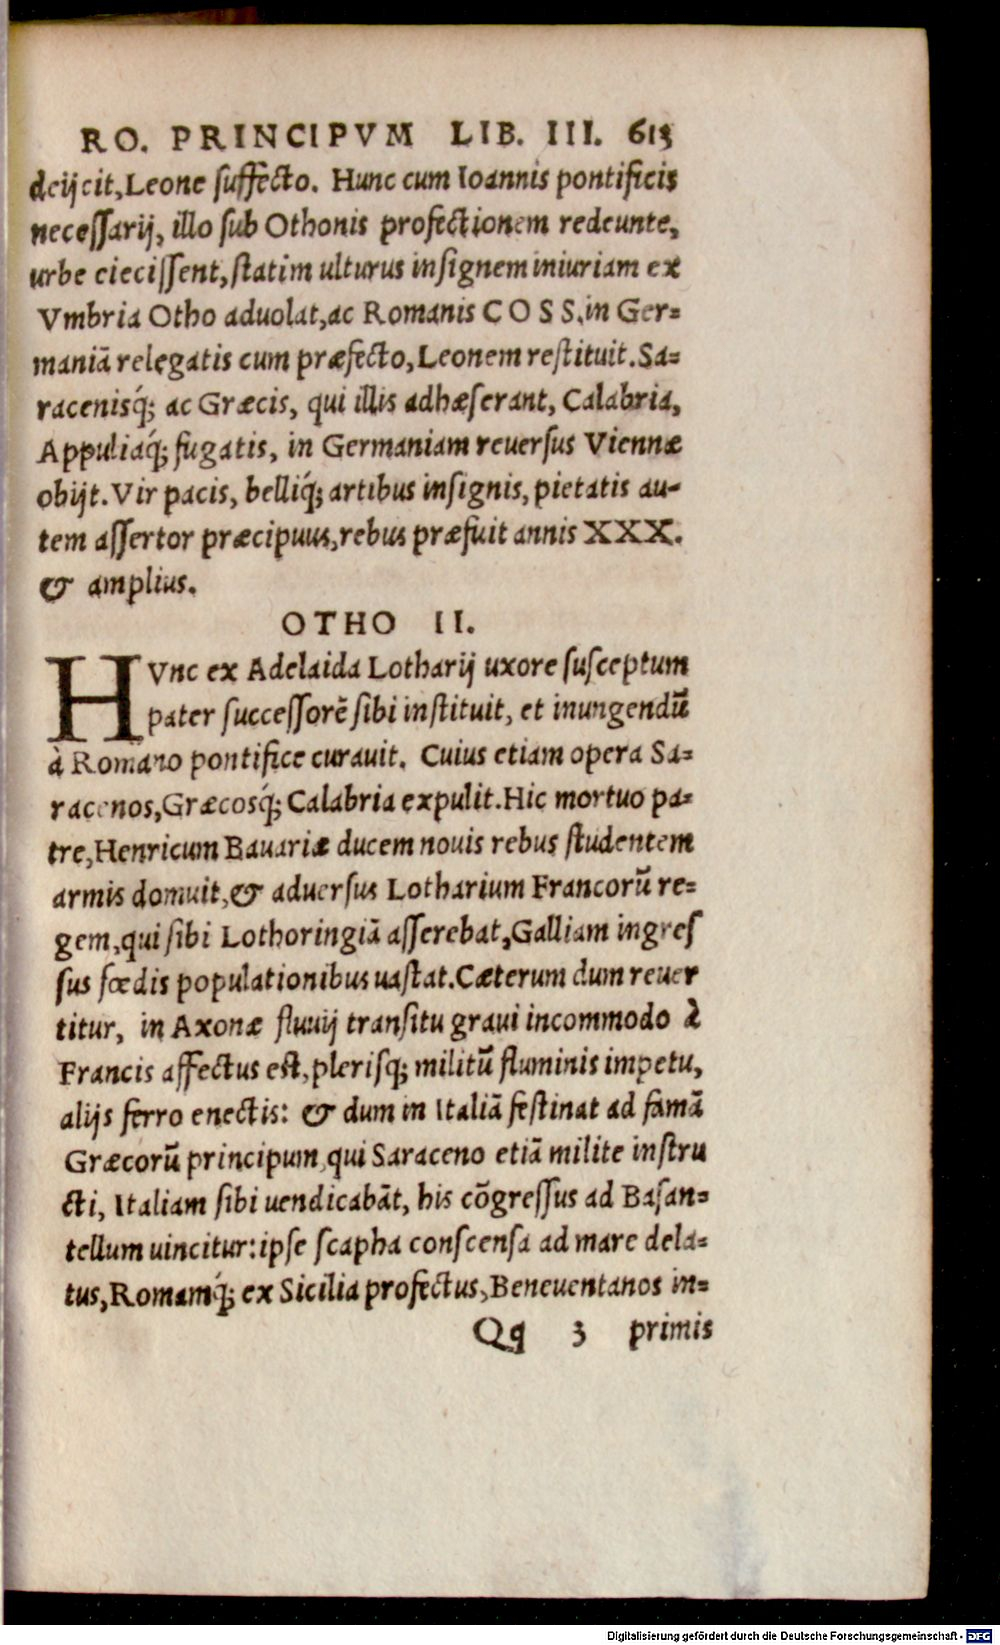 RO. PRINCIPVM LIB. III. 613
deijcit, Leone suffecto. Hunc cum Ioannis pontificis
necessarij, illo sub Othonis profectionem redeunte,
urbe eiecissent, statim ulturus insignem iniuriam ex
Vmbria Otho aduolat, ac Romanis COSS. in Ger=
maniā relegatis cum præfecto, Leonem restituit. Sa=
racenisq́; ac Græcis, qui illis adhæserant, Calabria,
Appuliaq́; fugatis, in Germaniam reuersus Viennæ
obijt. Vir pacis, belliq́; artibus insignis, pietatis au-
tem assertor præcipuus, rebus præfuit annis XXX.
& amplius.
OTHO II.
HVnc ex Adelaida Lotharij uxore susceptum
pater successorē sibi instituit, et inungendū
à Romano pontifice curauit. Cuius etiam opera Sa=
racenos, Græcosq́; Calabria expulit. Hic mortuo pa=
tre, Henricum Bauariæ ducem nouis rebus studentem
armis domuit, & aduersus Lotharium Francorū re=
gem, qui sibi Lothoringiā asserebat, Galliam ingres
sus fœdis populationibus uastat. Cæterum dum reuer
titur, in Axonæ fluuij transitu graui incommodo à
Francis affectus est, plerisq; militū fluminis impetu,
alijs ferro enectis: & dum in Italiā festinat ad famā
Græcorū principum, qui Saraceno etiā milite instru
cti, Italiam sibi uendicabāt, his cōgressus ad Basan=
tellum uincitur: ipse scapha conscensa ad mare dela=
tus, Romamq́; ex Sicilia profectus, Beneuentanos in=
Qq 3 primis
Digitalisierung gefördert durch die Deutsche Forschungsgemeinschaft - DFG